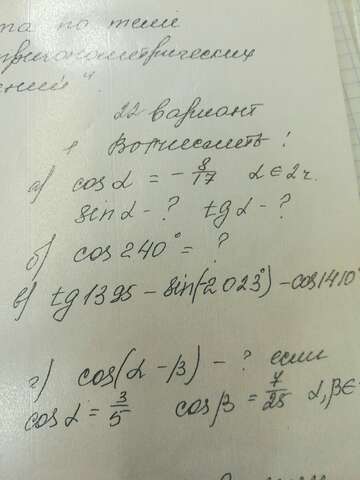 та по теме
тригонометрических
ений".
22 вариант
1 Вычислить:
а) cos α = - 8/17 α ∈ 2ч.
sin α - ? tg α - ?
б) cos 240° = ?
в) tg 1395 - sin(-2023°) - cos 1410°
г) cos(α - β) - ? если
cos α = 3/5 cos β = 7/25 α, β ∈